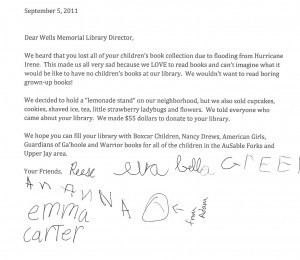 September 5, 2011
Dear Wells Memorial Library Director,
We heard that you lost all of your children's book collection due to flooding from Hurricane
Irene. This made us all very sad because we LOVE to read books and can't imagine what it
would be like to have no children's books at our library. We wouldn't want to read boring
grown-up books!
We decided to hold a "lemonade stand" on our neighborhood, but we also sold cupcakes,
cookies, shaved ice, tea, little strawberry ladybugs and flowers. We told everyone who
came about your library. We made $55 dollars to donate to your library.
We hope you can fill your library with Boxcar Children, Nancy Drews, American Girls,
Guardians of Ga'hoole and Warrior books for all of the children in the AuSable Forks and
Upper Jay area.
Your Friends, Reese eva bella
ANANNA
emma
from Adam
carter